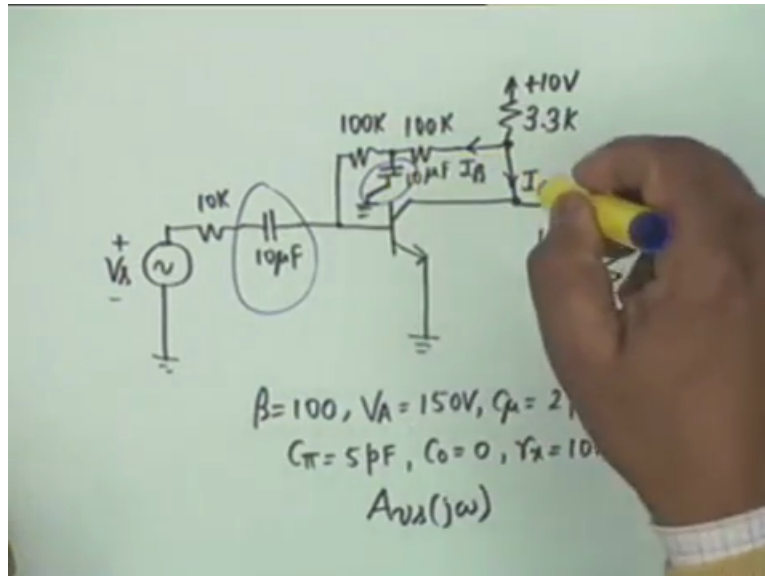 +10V
3.3K
100K 100K
10μF I_B
10K
10μF
+
V_s
-
β=100, V_A=150V, C_μ=2
C_π=5pF, C_0=0, r_x=10
A_vs(jω)